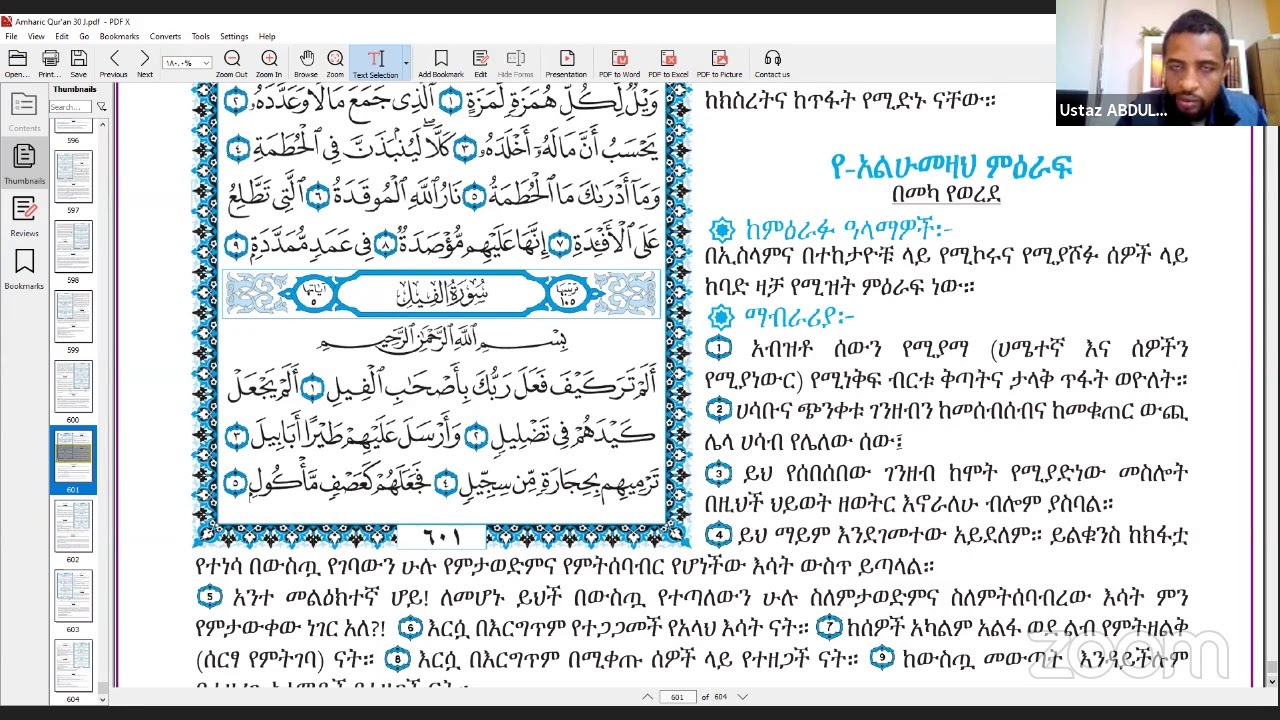 Amharic Qur'an 30 J.pdf - PDF X
File View Edit Go Bookmarks Converts Tools Settings Help
Open... Print... Save Previous Next ١٨٠.٠% Zoom Out Zoom In Browse Zoom Text Selection Add Bookmark Edit Hide Forms Presentation PDF to Word PDF to Excel PDF to Picture Contact us
Ustaz ABDUL...
Contents
Thumbnails
Reviews
Bookmarks
Thumbnails
Search...
596
597
598
599
600
601
602
603
604
وَيْلٌ لِّكُلِّ هُمَزَةٍ لُّمَزَةٍ ١ ٱلَّذِى جَمَعَ مَالًا وَعَدَّدَهُۥ ٢
يَحْسَبُ أَنَّ مَالَهُۥٓ أَخْلَدَهُۥ ٣ كَلَّا لَيُنۢبَذَنَّ فِى ٱلْحُطَمَةِ ٤
وَمَآ أَدْرَىٰكَ مَا ٱلْحُطَمَةُ ٥ نَارُ ٱللَّهِ ٱلْمُوقَدَةُ ٦ ٱلَّتِى تَطَّلِعُ
عَلَى ٱلْأَفْـِٔدَةِ ٧ إِنَّهَا عَلَيْهِم مُّؤْصَدَةٌ ٨ فِى عَمَدٍ مُّمَدَّدَةٍۭ ٩
ترتيبها ١٠٥ سُورَةُ الفِيلِ آياتها ٥
بِسْمِ ٱللَّهِ ٱلرَّحْمَٰنِ ٱلرَّحِيمِ
أَلَمْ تَرَ كَيْفَ فَعَلَ رَبُّكَ بِأَصْحَٰبِ ٱلْفِيلِ ١ أَلَمْ يَجْعَلْ
كَيْدَهُمْ فِى تَضْلِيلٍ ٢ وَأَرْسَلَ عَلَيْهِمْ طَيْرًا أَبَابِيلَ ٣
تَرْمِيهِم بِحِجَارَةٍ مِّن سِجِّيلٍ ٤ فَجَعَلَهُمْ كَعَصْفٍ مَّأْكُولٍۭ ٥
٦٠١
ከክስረትና ከጥፋት የሚድኑ ናቸው።
የ-አልሁመዛህ ምዕራፍ
በመካ የወረደ
ከምዕራፉ ዓላማዎች፡-
በኢስላምና በተከታዮቹ ላይ የሚኮሩና የሚያሾፉ ሰዎች ላይ
ከባድ ዛቻ የሚዝት ምዕራፍ ነው።
ማብራሪያ፡-
1 አብዝቶ ሰውን የሚያማ (ሀሜተኛ እና ሰዎችን
የሚያነውር) የሚነቅፍ ብርቱ ቅጣትና ታላቅ ጥፋት ወዮለት።
2 ሀሳቡና ጭንቀቱ ገንዘብን ከመሰብሰብና ከመቁጠር ውጪ
ሌላ ሀሳብ የሌለው ሰው፤
3 ይህ የሰበሰበው ገንዘብ ከሞት የሚያድነው መስሎት
በዚህች ህይወት ዘወትር እኖራለሁ ብሎም ያስባል።
4 ይህ ማይም እንደገመተው አይደለም። ይልቁንስ ከክፋቷ
የተነሳ በውስጧ የገባውን ሁሉ የምታወድምና የምትሰባብር የሆነችው እሳት ውስጥ ይጣላል።
5 አንተ መልዕክተኛ ሆይ! ለመሆኑ ይህች በውስጧ የተጣለውን ሁሉ ስለምታወድምና ስለምትሰባብረው እሳት ምን
የምታውቀው ነገር አለ?! 6 እርሷ በእርግጥም የተጋጋመች የአላህ እሳት ናት። 7 ከሰዎች አካልም አልፋ ወደ ልብ የምትዘልቅ
(ሰርፃ የምትገባ) ናት። 8 እርሷ በእርግጥም በሚቀጡ ሰዎች ላይ የተዘጋች ናት። 9 ከውስጧ መውጣት እንዳይችሉም
zoom
601 of 604